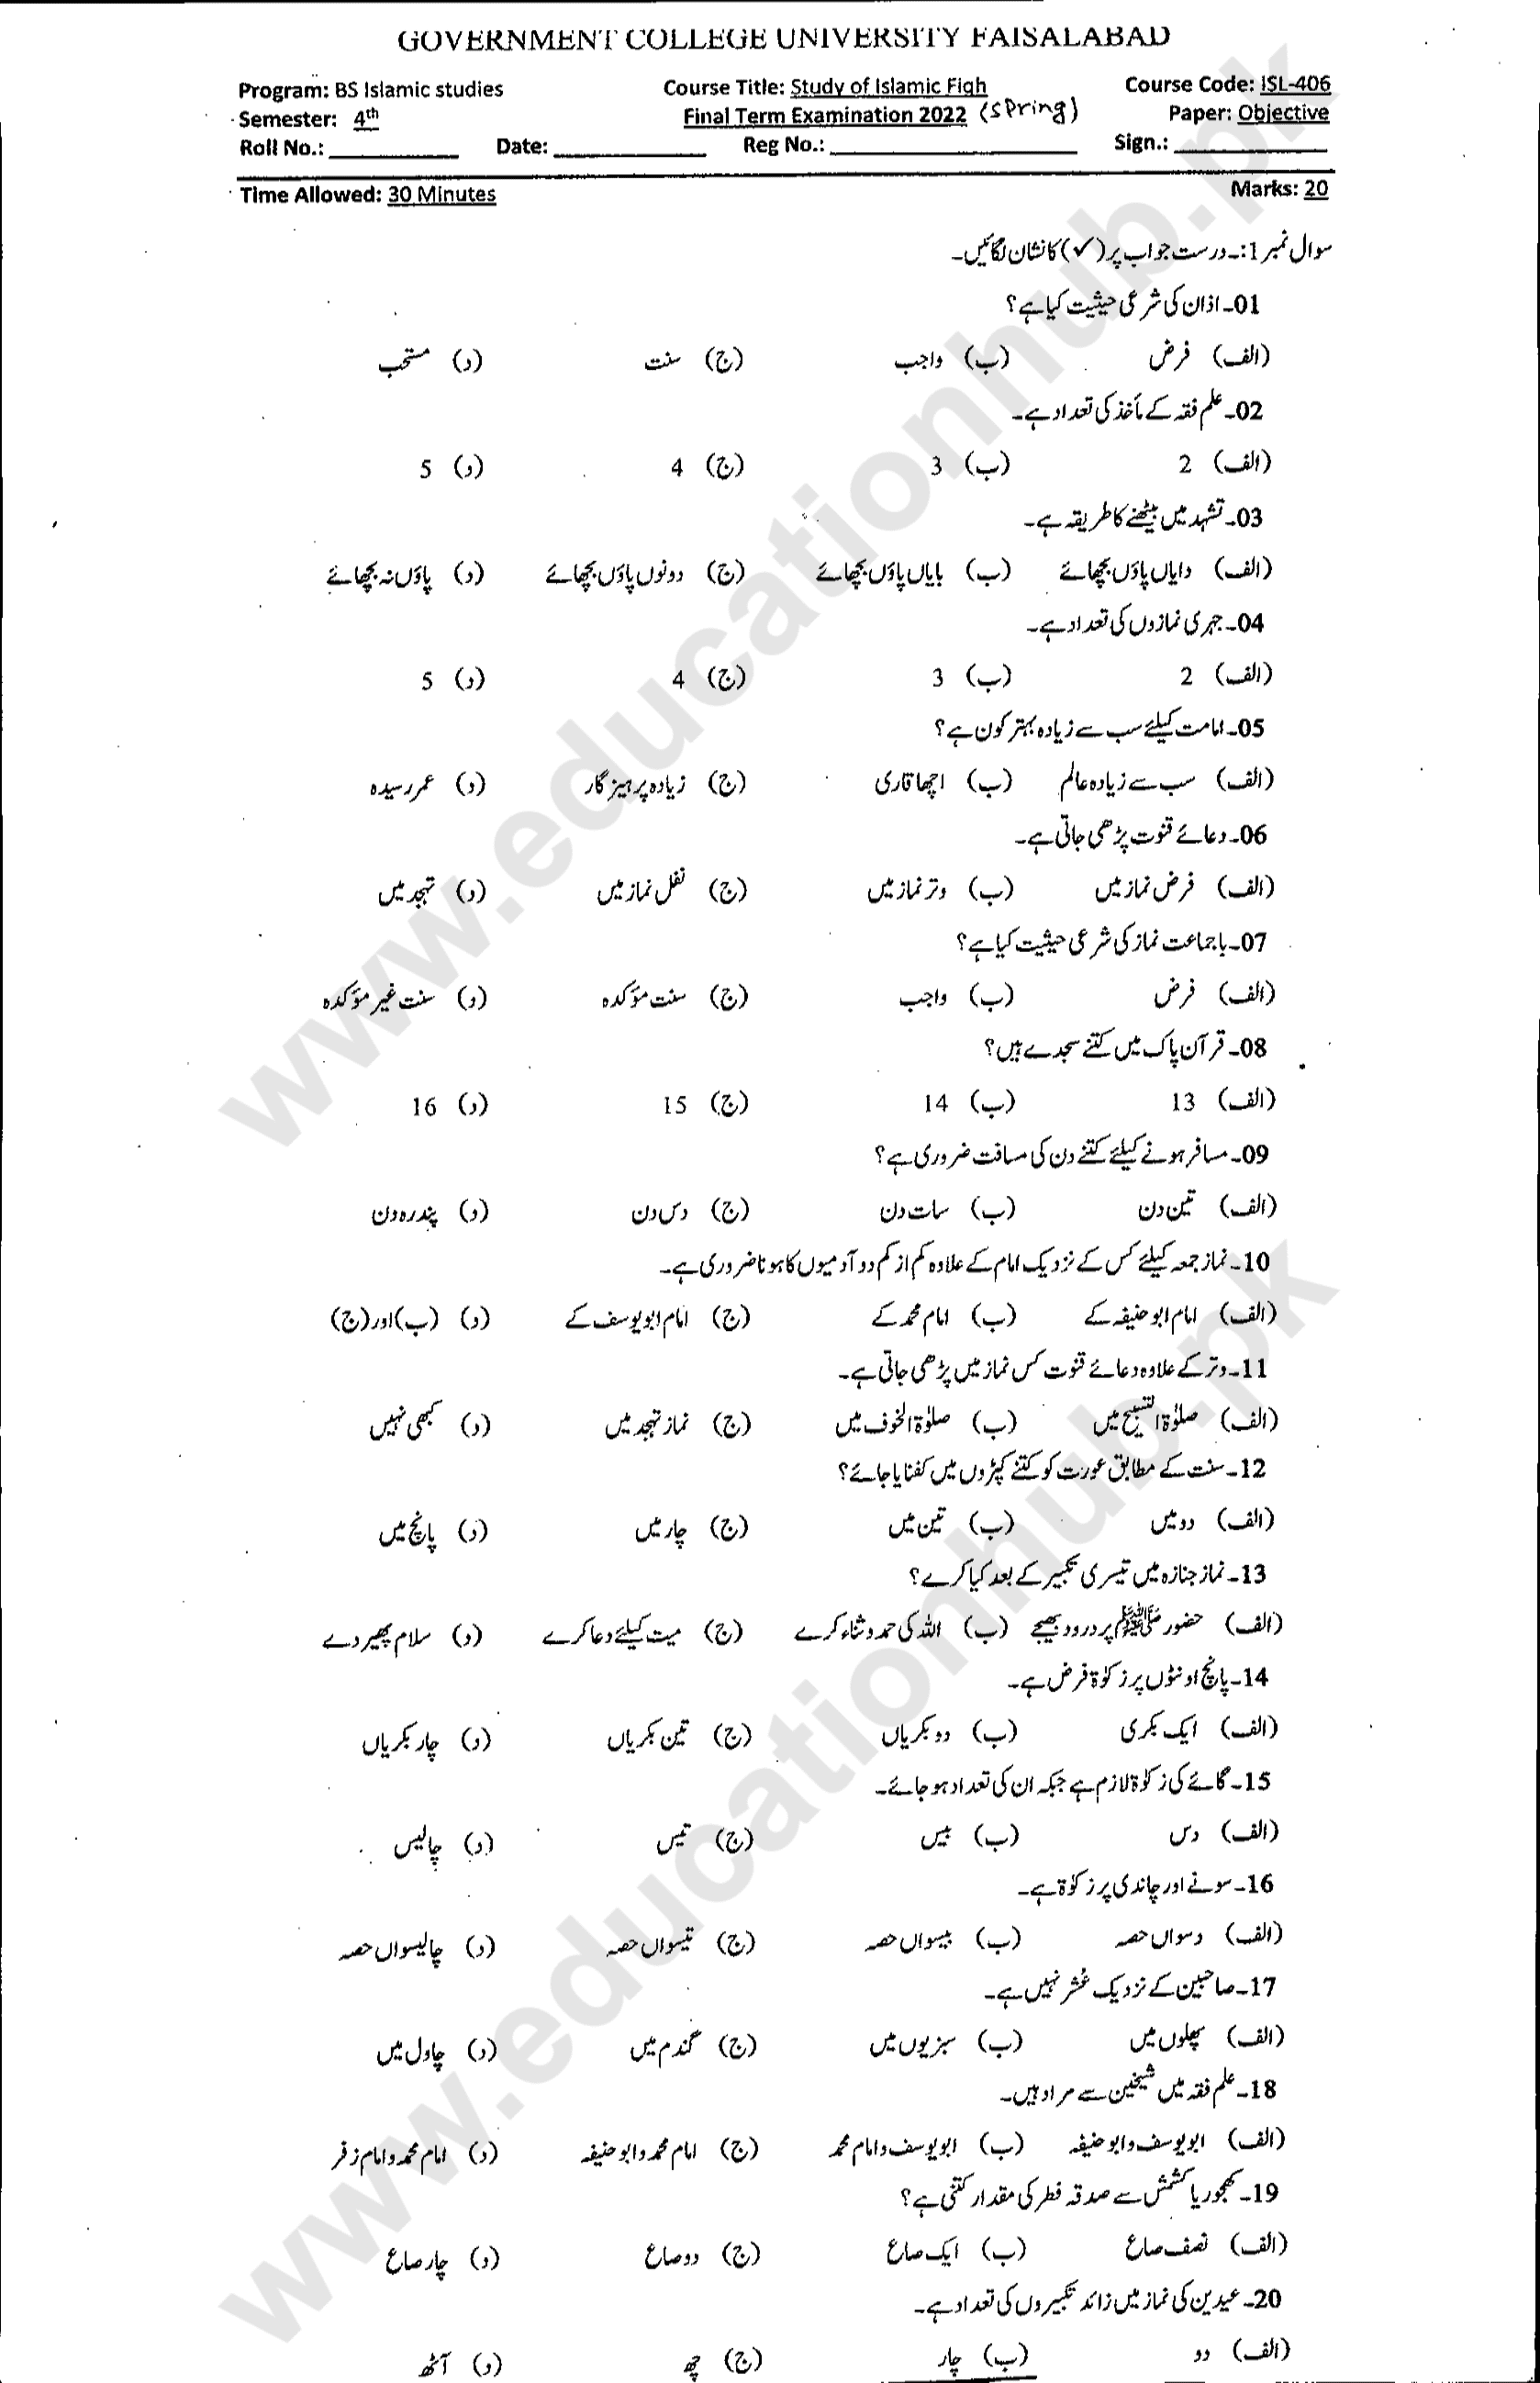 GOVERNMENT COLLEGE UNIVERSITY FAISALABAD
Program: BS Islamic studies Course Title: Study of Islamic Fiqh Course Code: ISL-406
Semester: 4th Final Term Examination 2022 (Spring) Paper: Objective
Roll No.: Date: Reg No.: Sign.:
Time Allowed: 30 Minutes Marks: 20
سوال نمبر 1:۔ درست جواب پر (✓) کا نشان لگائیں۔
01۔ اذان کی شرعی حیثیت کیا ہے؟
(الف) فرض (ب) واجب (ج) سنت (د) مستحب
02۔ علم فقہ کے مأخذ کی تعداد ہے۔
(الف) 2 (ب) 3 (ج) 4 (د) 5
03۔ تشہد میں بیٹھنے کا طریقہ ہے۔
(الف) دایاں پاؤں بچھائے (ب) بایاں پاؤں بچھائے (ج) دونوں پاؤں بچھائے (د) پاؤں نہ بچھائے
04۔ جہری نمازوں کی تعداد ہے۔
(الف) 2 (ب) 3 (ج) 4 (د) 5
05۔ امامت کیلئے سب سے زیادہ بہتر کون ہے؟
(الف) سب سے زیادہ عالم (ب) اچھا قاری (ج) زیادہ پرہیز گار (د) عمر رسیدہ
06۔ دعائے قنوت پڑھی جاتی ہے۔
(الف) فرض نماز میں (ب) وتر نماز میں (ج) نفل نماز میں (د) تہجد میں
07۔ باجماعت نماز کی شرعی حیثیت کیا ہے؟
(الف) فرض (ب) واجب (ج) سنت مؤکدہ (د) سنت غیر مؤکدہ
08۔ قرآن پاک میں کتنے سجدے ہیں؟
(الف) 13 (ب) 14 (ج) 15 (د) 16
09۔ مسافر ہونے کیلئے کتنے دن کی مسافت ضروری ہے؟
(الف) تین دن (ب) سات دن (ج) دس دن (د) پندرہ دن
10۔ نماز جمعہ کیلئے کس کے نزدیک امام کے علاوہ کم از کم دو آدمیوں کا ہونا ضروری ہے۔
(الف) امام ابو حنیفہ کے (ب) امام محمد کے (ج) امام ابو یوسف کے (د) (ب) اور (ج)
11۔ وتر کے علاوہ دعائے قنوت کس نماز میں پڑھی جاتی ہے۔
(الف) صلوٰۃ التسبیح میں (ب) صلوٰۃ الخوف میں (ج) نماز تہجد میں (د) کبھی نہیں
12۔ سنت کے مطابق عورت کو کتنے کپڑوں میں کفنایا جائے؟
(الف) دو میں (ب) تین میں (ج) چار میں (د) پانچ میں
13۔ نماز جنازہ میں تیسری تکبیر کے بعد کیا کرے؟
(الف) حضور ﷺ پر درود بھیجے (ب) اللہ کی حمد و ثناء کرے (ج) میت کیلئے دعا کرے (د) سلام پھیر دے
14۔ پانچ اونٹوں پر زکوٰۃ فرض ہے۔
(الف) ایک بکری (ب) دو بکریاں (ج) تین بکریاں (د) چار بکریاں
15۔ گائے کی زکوٰۃ لازم ہے جبکہ ان کی تعداد ہو جائے۔
(الف) دس (ب) بیس (ج) تیس (د) چالیس
16۔ سونے اور چاندی پر زکوٰۃ ہے۔
(الف) دسواں حصہ (ب) بیسواں حصہ (ج) تیسواں حصہ (د) چالیسواں حصہ
17۔ صاحبین کے نزدیک عُشر نہیں ہے۔
(الف) پھلوں میں (ب) سبزیوں میں (ج) گندم میں (د) چاول میں
18۔ علم فقہ میں شیخین سے مراد ہیں۔
(الف) ابو یوسف و ابو حنیفہ (ب) ابو یوسف و امام محمد (ج) امام محمد و ابو حنیفہ (د) امام محمد و امام زفر
19۔ کھجور یا کشمش سے صدقہ فطر کی مقدار کتنی ہے؟
(الف) نصف صاع (ب) ایک صاع (ج) دو صاع (د) چار صاع
20۔ عیدین کی نماز میں زائد تکبیروں کی تعداد ہے۔
(الف) دو (ب) چار (ج) چھ (د) آٹھ
www.educationhub.pk
www.educationhub.pk